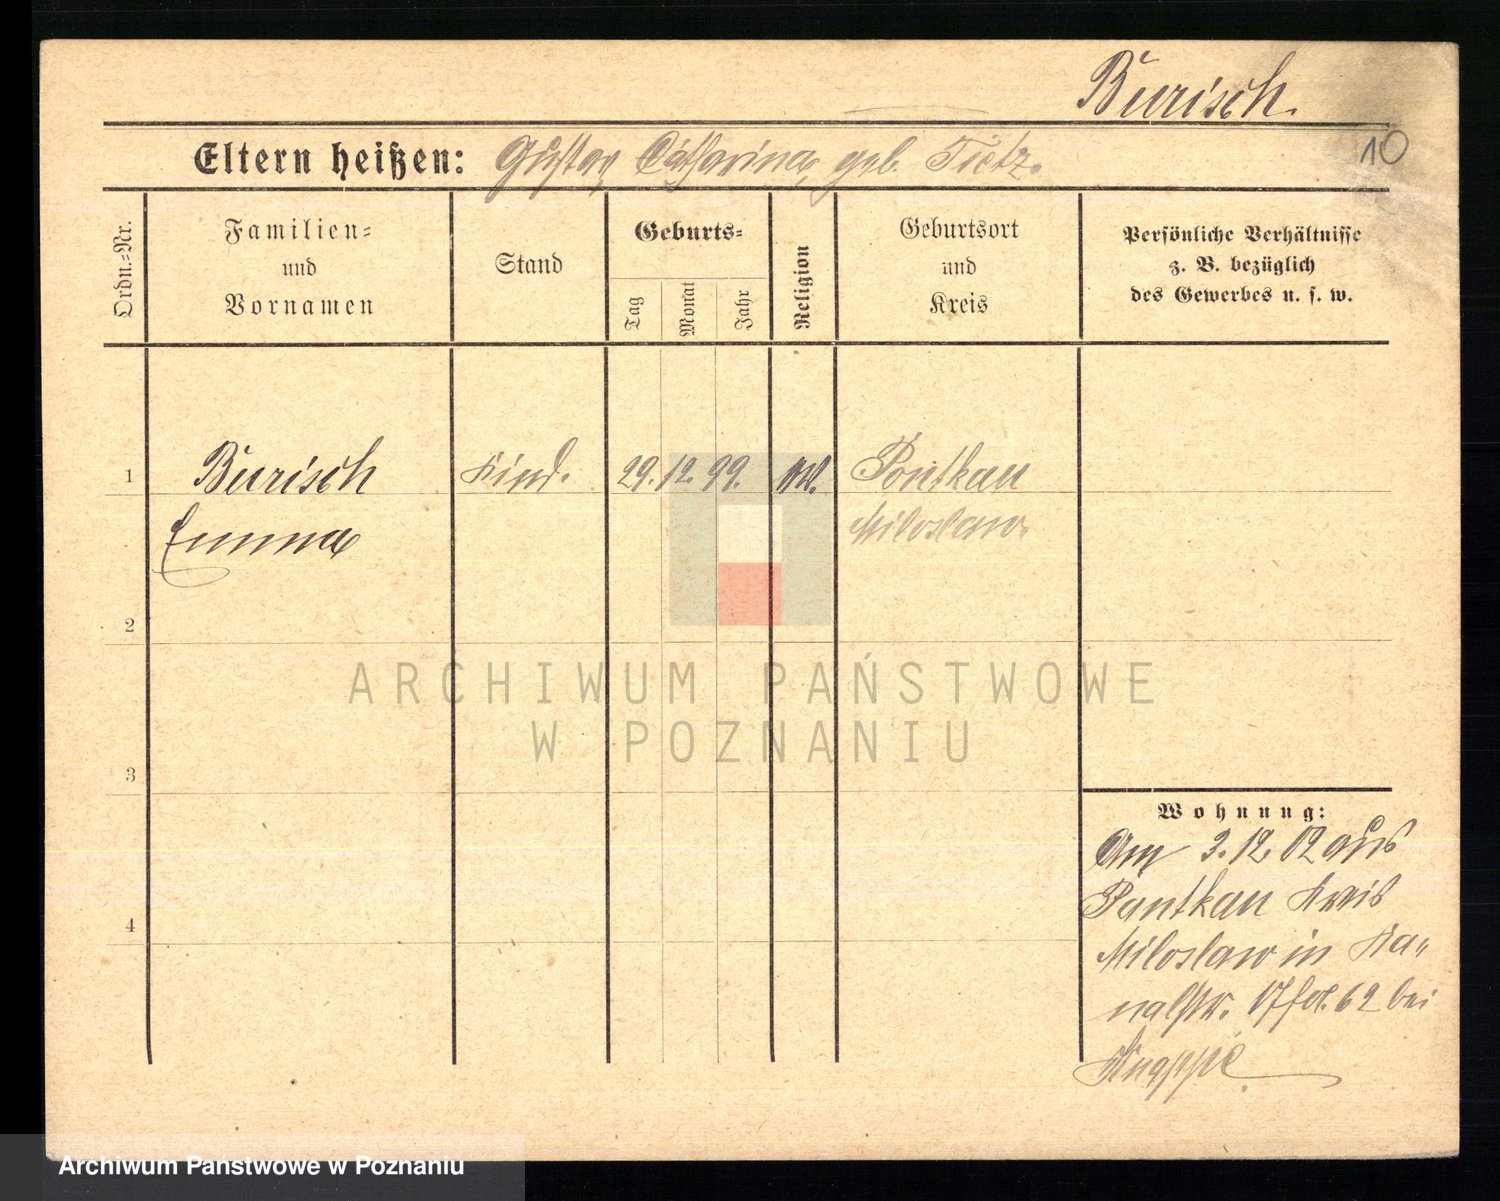 Burisch.
10
Eltern heißen: Gustav, Catharina, geb. Tietz.
Ordn.-Nr.
Familien-
und
Vornamen
Stand
Geburts-
Tag
Monat
Jahr
Religion
Geburtsort
und
Kreis
Persönliche Verhältnisse
z. B. bezüglich
des Gewerbes u. s. w.
1 Burisch Kind. 29. 12. 99. Pontkau
Emma Miloslaw.
2
3
4
ARCHIWUM PAŃSTWOWE
W POZNANIU
Wohnung:
Am 3.12.02 aus
Pontkau Kreis
Miloslaw in Ka-
nalstr. 17 62 bei
Knappe
Archiwum Państwowe w Poznaniu